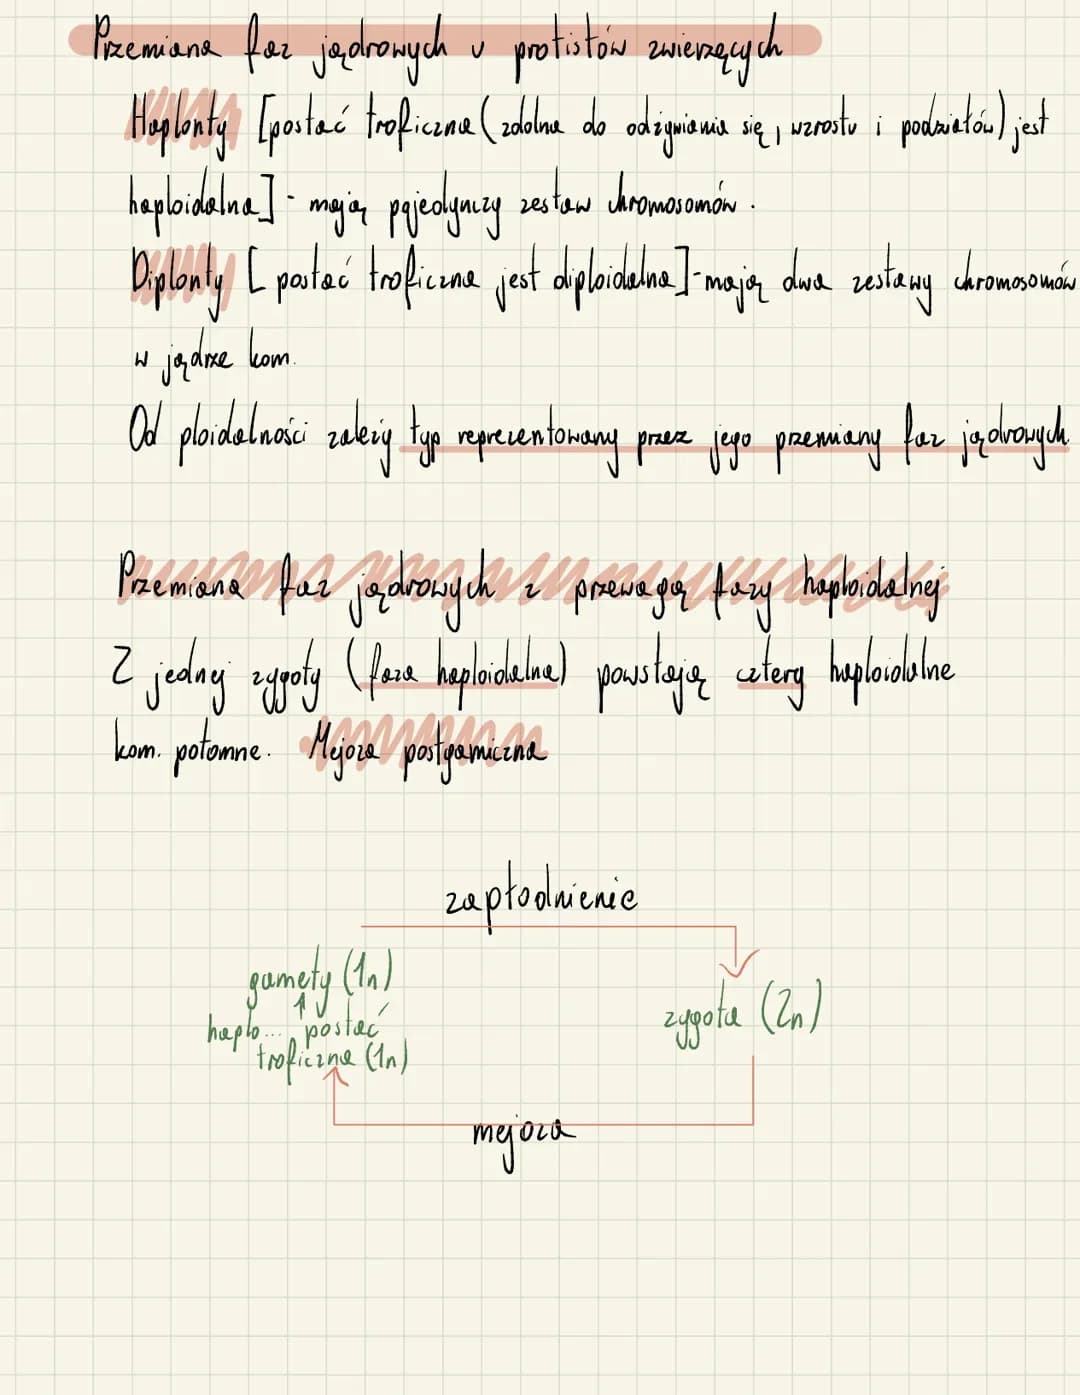 Przemiana faz jądrowych u protistów zwierzęcych
Haplonty [postać troficzna (zdolna do odżywiania się, wzrostu i podziałów) jest
haploidalna] - mają pojedynczy zestaw chromosomów.
Diplonty [postać troficzna jest diploidalna] - mają dwa zestawy chromosomów
w jądrze kom.
Od ploidalności zależy typ reprezentowany przez jego przemiany faz jądrowych.
Przemiana faz jądrowych z przewagą fazy haploidalnej
Z jednej zygoty (faza haploidalna) powstają cztery haploidalne
kom. potomne. Mejoza postgamiczna
zapłodnienie
gamety (1n)
haplo... postać
troficzna (1n)
zygota (2n)
mejoza